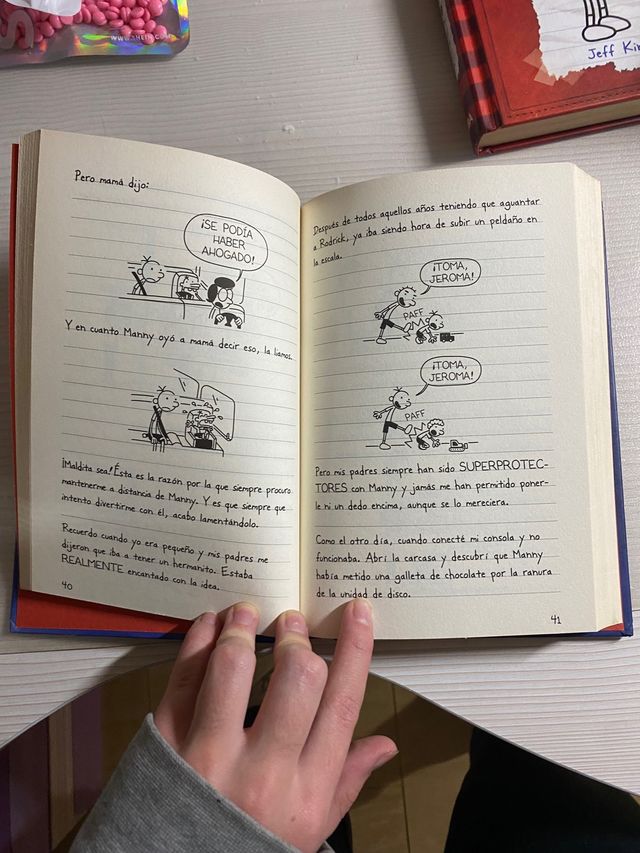 WWW.SHEIN.COM
S
Jeff Kin
Pero mamá dijo:
¡SE PODÍA
HABER
AHOGADO!
Y en cuanto Manny oyó a mamá decir eso, la liamos.
¡Maldita sea! Ésta es la razón por la que siempre procuro
mantenerme a distancia de Manny. Y es que siempre que
intento divertirme con él, acabo lamentándolo.
Recuerdo cuando yo era pequeño y mis padres me
dijeron que iba a tener un hermanito. Estaba
REALMENTE encantado con la idea.
40
Después de todos aquellos años teniendo que aguantar
a Rodrick, ya iba siendo hora de subir un peldaño en
la escala.
¡TOMA,
JEROMA!
PAFF
¡TOMA,
JEROMA!
PAFF
Pero mis padres siempre han sido SUPERPROTEC-
TORES con Manny y jamás me han permitido poner-
le ni un dedo encima, aunque se lo mereciera.
Como el otro día, cuando conecté mi consola y no
funcionaba. Abrí la carcasa y descubrí que Manny
había metido una galleta de chocolate por la ranura
de la unidad de disco.
41